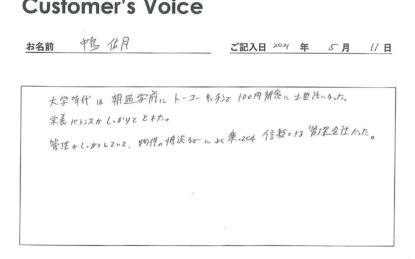 Customer's Voice
お名前 中島 佑月 ご記入日 2021 年 5 月 11 日
大学時代は 朝通学前に トーコーキッチンで 100円朝食に お世話になった。
栄養バランスがしっかりと とれた。
管理もしっかりしていて、物件の相談などにもよく乗ってくれる 信頼できる 管理会社だった。